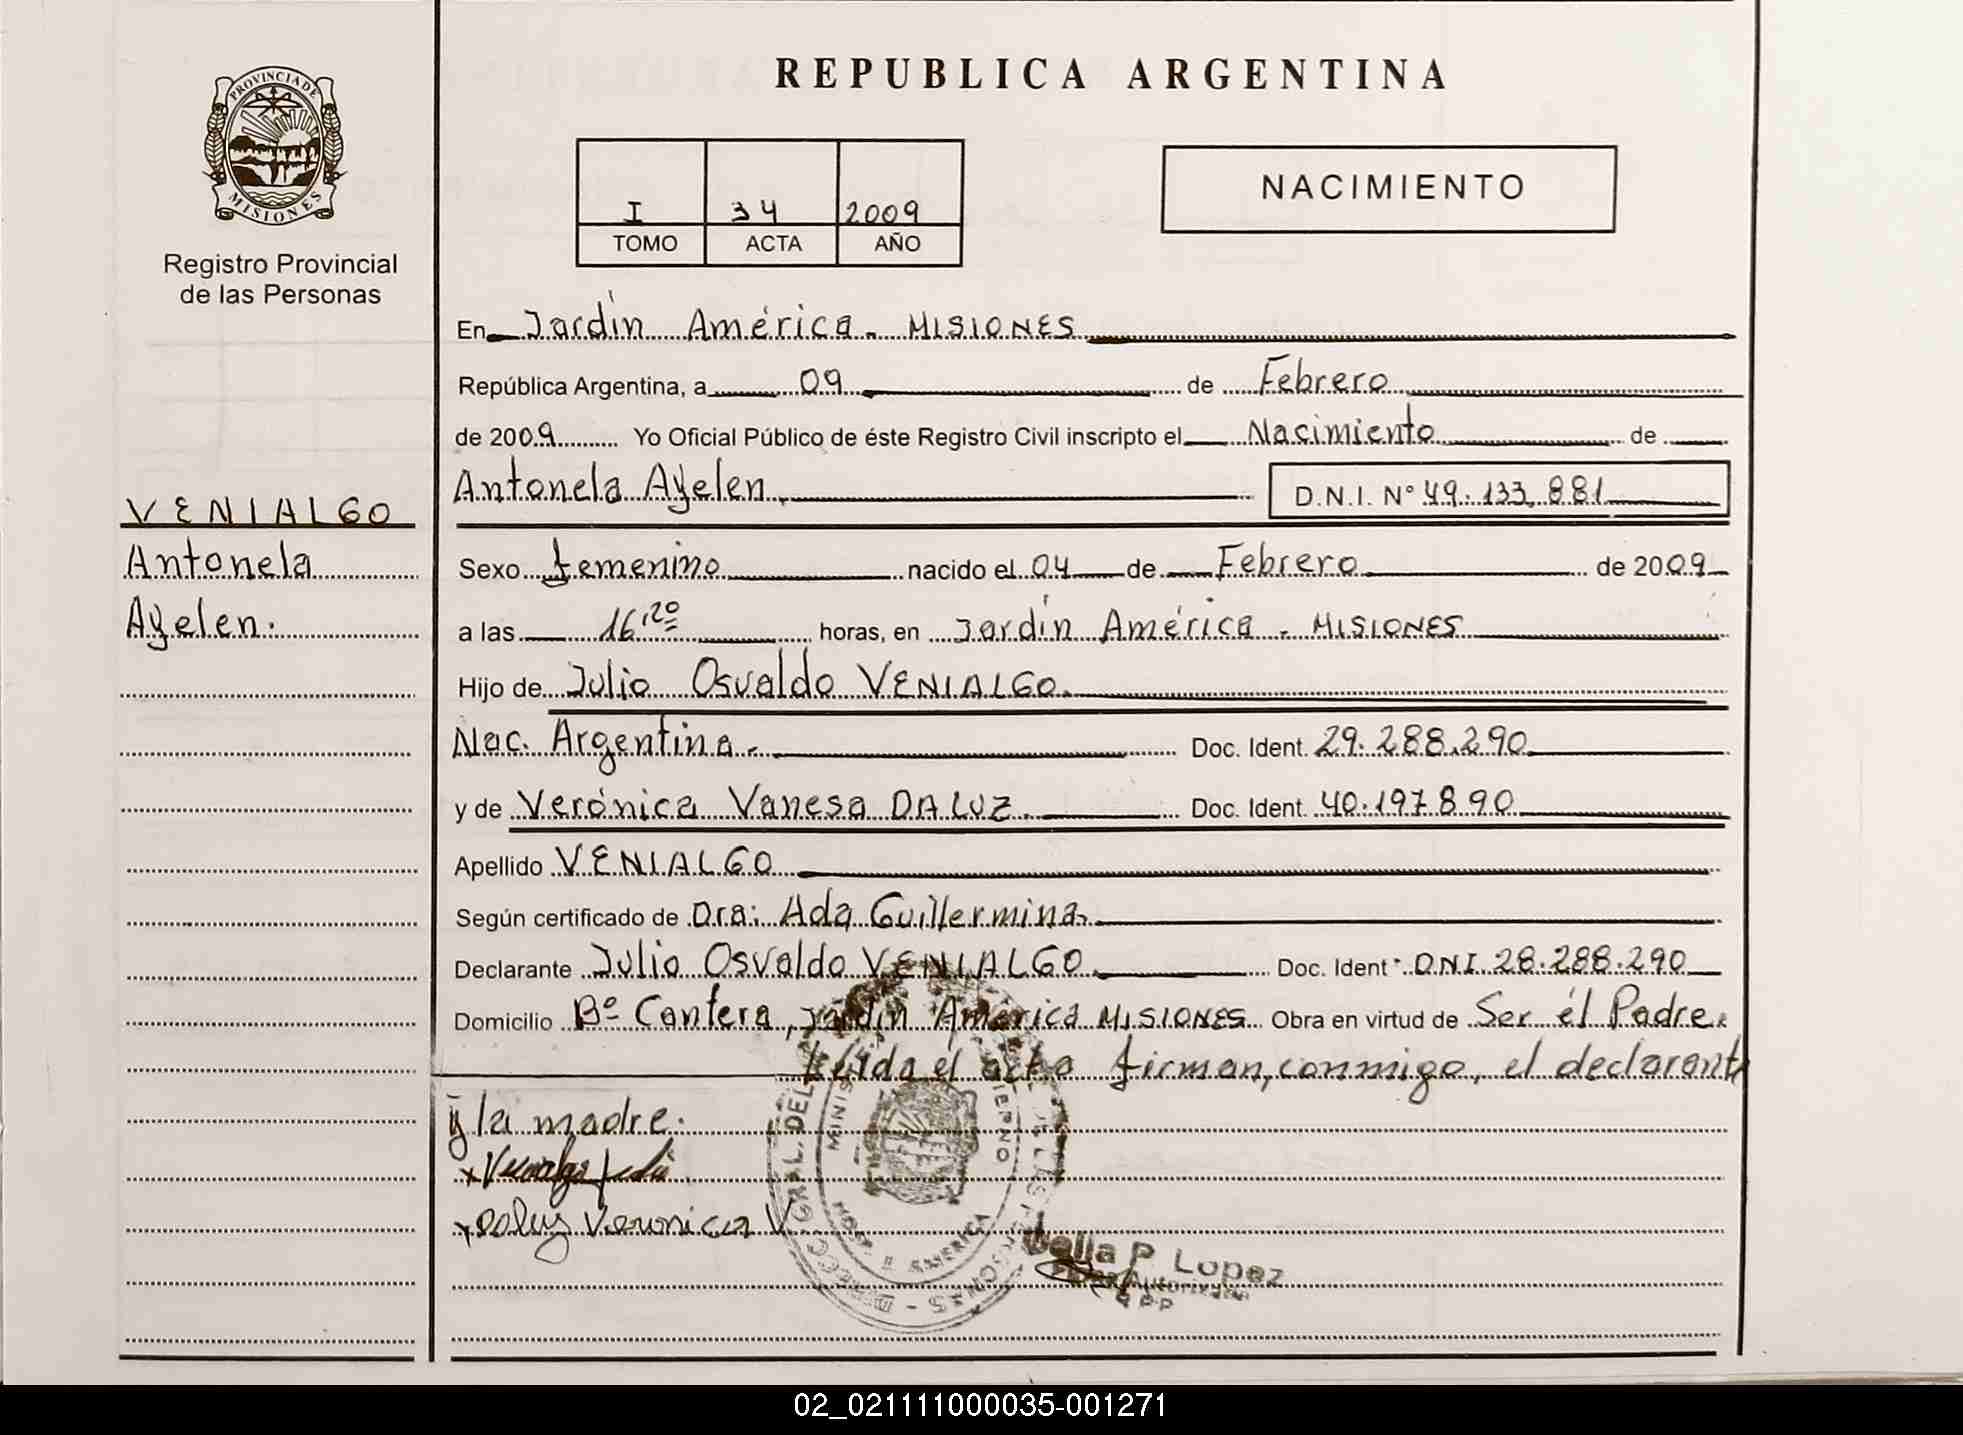 PROVINCIA DE
MISIONES
Registro Provincial
de las Personas
VENIALGO
Antonela
Ayelen.
REPUBLICA ARGENTINA
I 34 2009
TOMO ACTA AÑO
NACIMIENTO
En Jardín América - MISIONES
República Argentina, a 09 de Febrero
de 2009 Yo Oficial Público de éste Registro Civil inscripto el Nacimiento de
Antonela Ayelen. D.N.I. N° 49.133.881
Sexo femenino nacido el 04 de Febrero de 2009
a las 16,20 horas, en Jardín América - MISIONES
Hijo de Julio Osvaldo VENIALGO.
Nac. Argentina. Doc. Ident. 29.288.290
y de Verónica Vanesa DA LUZ. Doc. Ident. 40.197.890
Apellido VENIALGO
Según certificado de Dra: Ada Guillermina.
Declarante Julio Osvaldo VENIALGO Doc. Ident DNI 28.288.290
Domicilio Bº Cantera, Jardín América MISIONES Obra en virtud de Ser él Padre.
leida el acta firman, conmigo, el declarante
y la madre.
x Venialgo Julio
x Daluz Veronica V
P Lopez
02_021111000035-001271